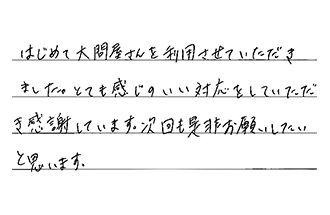 はじめて大問屋さんを利用させていただき
ました。とても感じのいい対応をしていただ
き感謝しています。次回も是非お願いしたい
と思います。